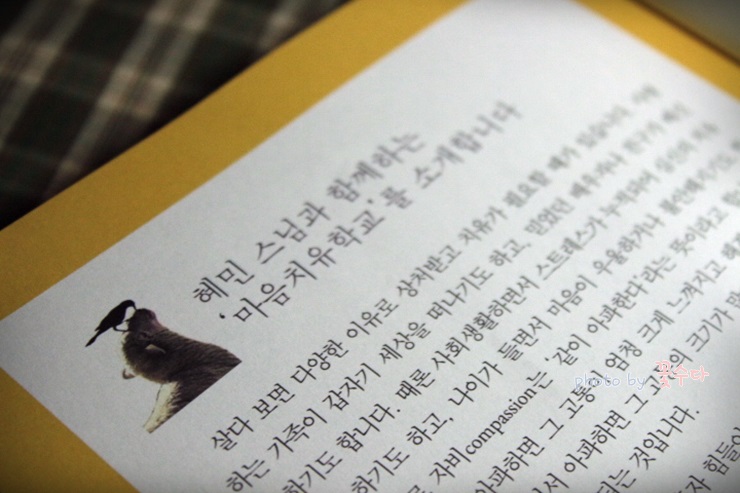 혜민 스님과 함께하는
‘마음치유학교’를 소개합니다
살다 보면 다양한 이유로 상처받고 치유가 필요할 때가 있습니다. 사랑
하는 가족이 갑자기 세상을 떠나기도 하고, 믿었던 배우자나 친구가 배신
하기도 합니다. 때론 사회생활하면서 스트레스가 누적되어
하기도 하고, 나이가 들면서 마음이 우울하거나 불안해지기도
자비compassion는 ‘같이 아파한다’라는 뜻이라고
아파하면 그 고통이 엄청 크게 느껴지고
서 아파하면 그 고통의 크기가
되는 것입니다.
힘들어
photo by 꽃수다